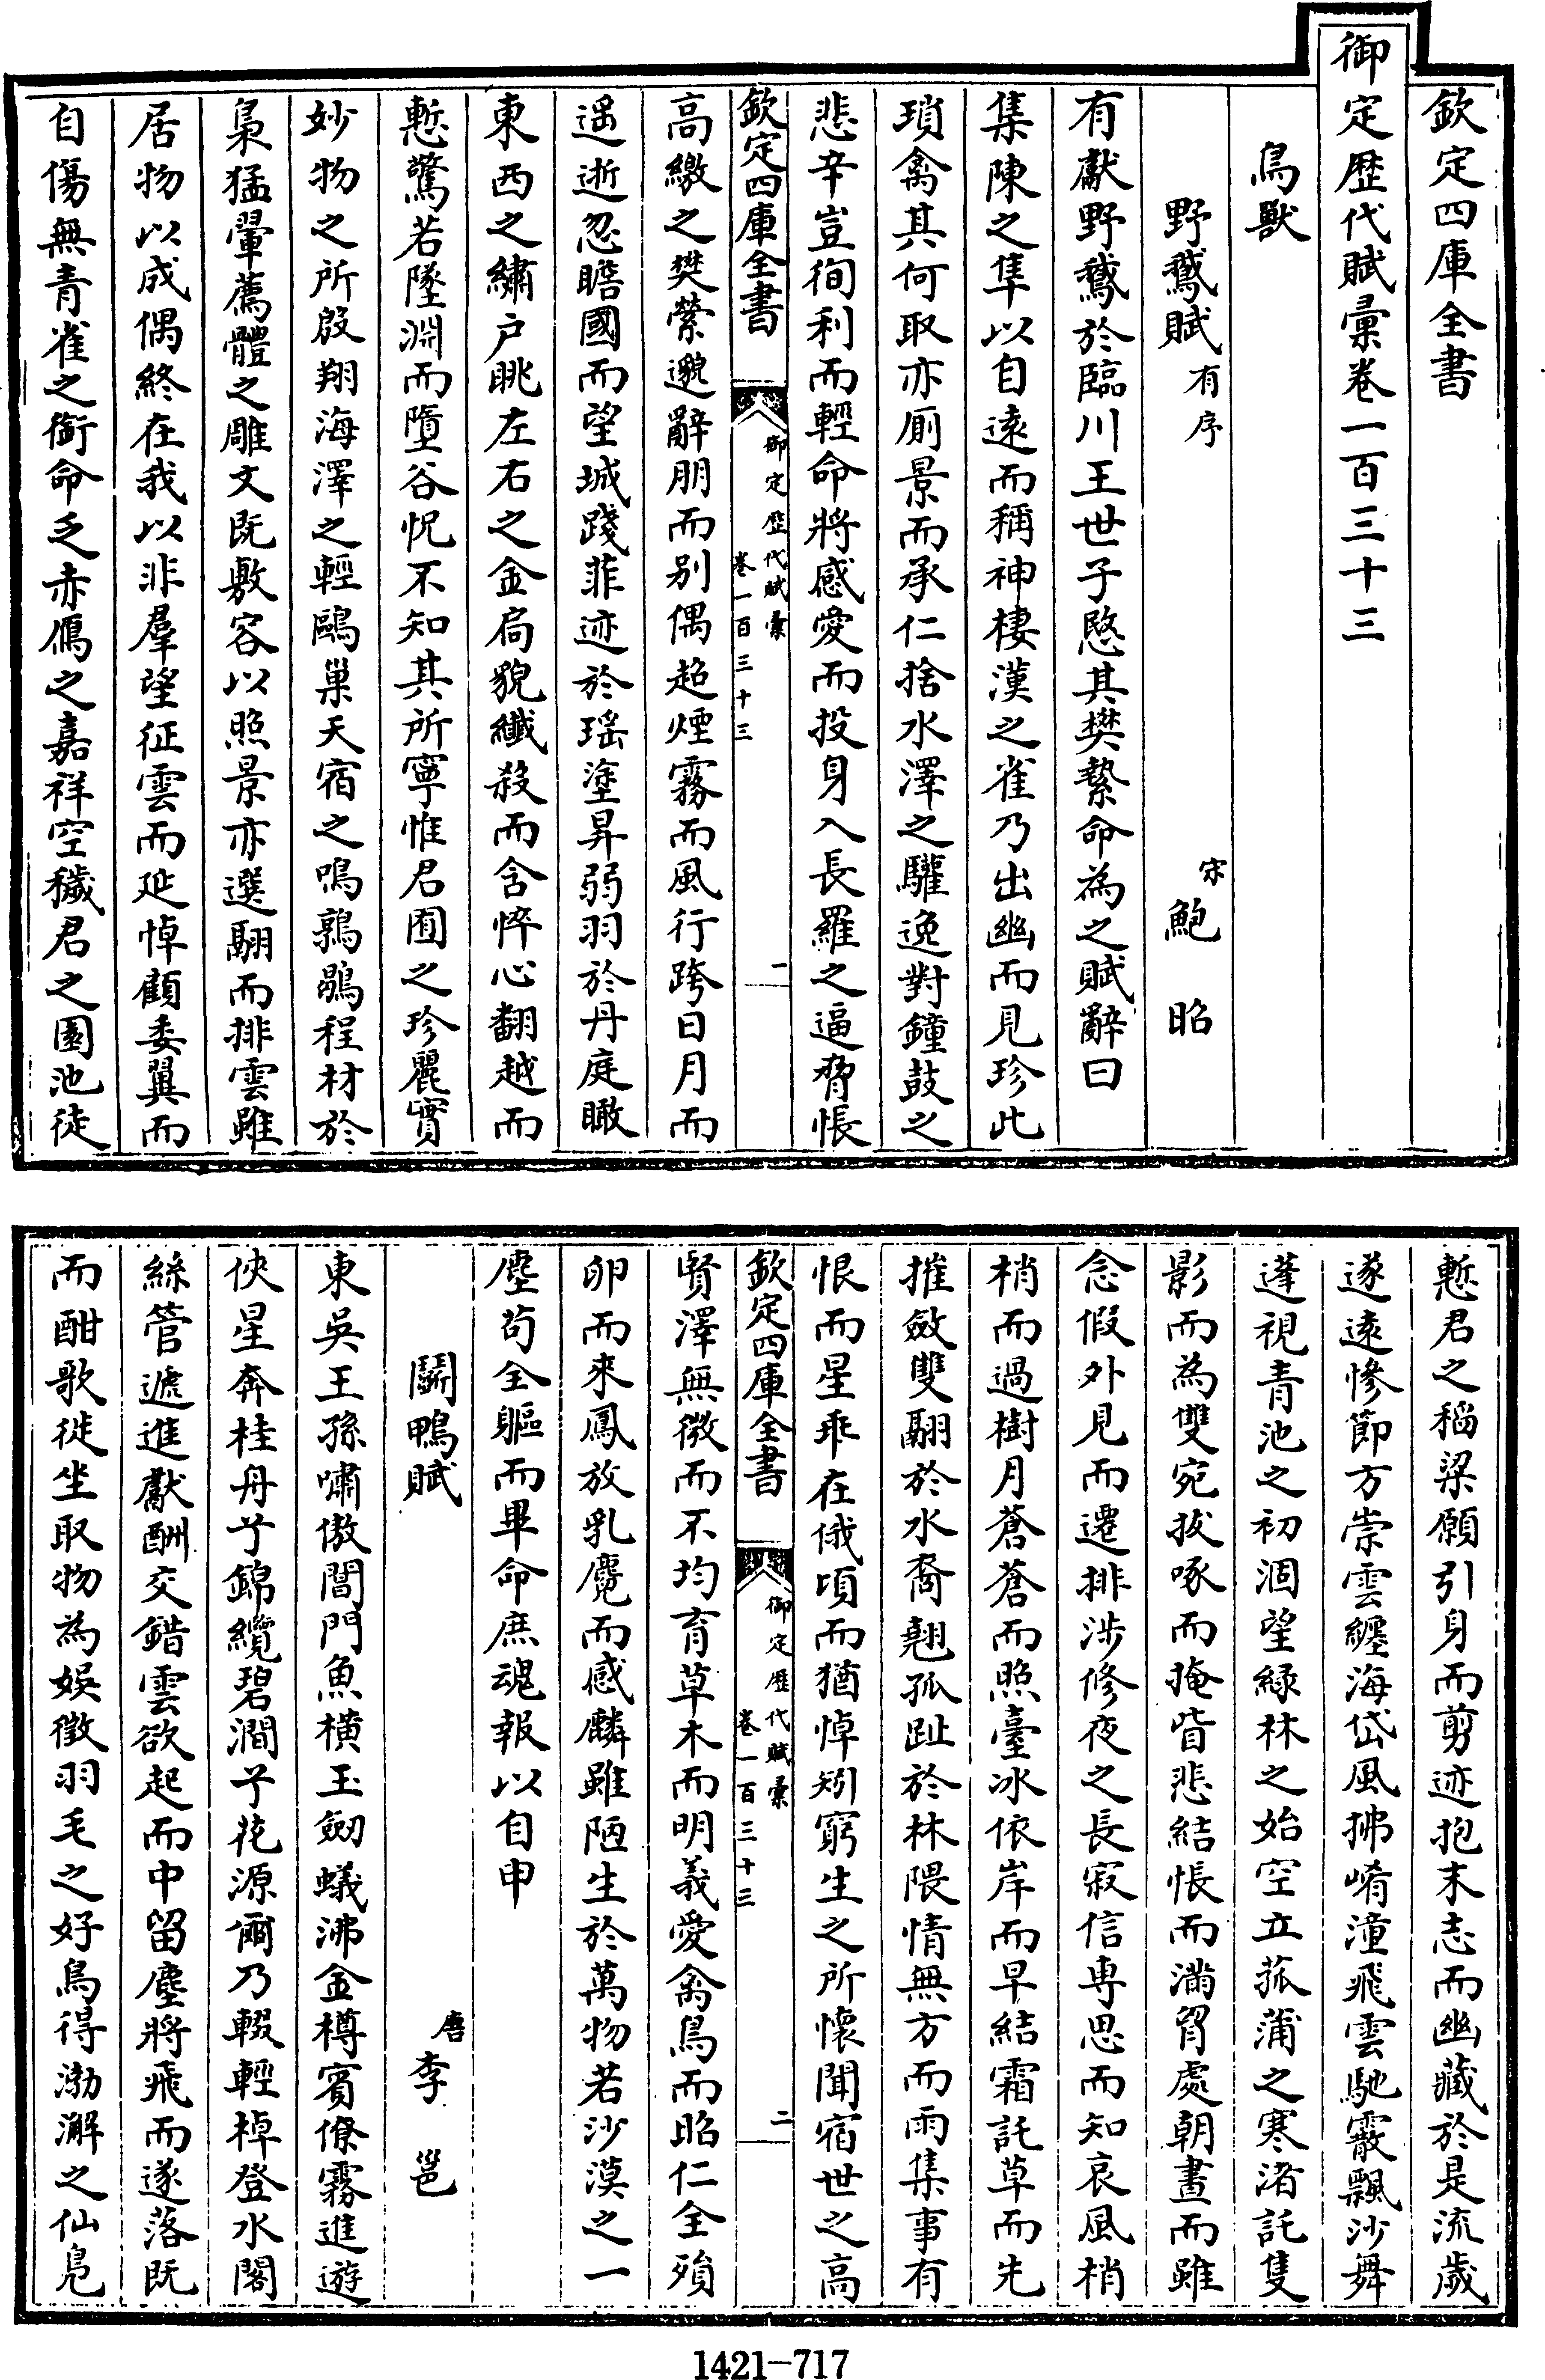 欽定四庫全書
御定歴代賦彙卷一百三十三
鳥獸
野鵞賦有序
宋鮑昭
有獻野鵞於臨川王世子愍其樊縶命為之賦辭曰
集陳之隼以自遠而稱神棲漢之雀乃出幽而見珍此
瑣禽其何取亦厠景而承仁捨水澤之驩逸對鐘鼓之
悲辛豈徇利而輕命將感愛而投身入長羅之逼脅悵
欽定四庫全書
御定歴代賦彙
卷一百三十三
一
高繳之樊縈邈辭朋而别偶超煙霧而風行跨日月而
遥逝忽瞻國而望城踐菲迹於瑶塗昇弱羽於丹庭瞰
東西之繡户眺左右之金扃貌纖殺而含悴心翻越而
慙驚若墜淵而墮谷怳不知其所寧惟君囿之珍麗實
妙物之所殷翔海澤之輕鷗巢天宿之鳴鶉鶡程材於
梟猛翬薦體之雕文既敷容以照景亦選翮而排雲雖
居物以成偶終在我以非羣望征雲而延悼顧委翼而
自傷無青雀之銜命乏赤鴈之嘉祥空穢君之園池徒
慙君之稻粱願引身而剪迹抱末志而幽藏於是流歲
遂遠慘節方崇雲纏海岱風拂崤潼飛雲馳霰飄沙舞
蓬視青池之初涸望緑林之始空立菰蒲之寒渚託隻
影而為雙宛拔啄而掩眥悲結悵而滿胷處朝晝而雖
念假外見而遷排涉修夜之長寂信專思而知哀風梢
梢而過樹月蒼蒼而照臺冰依岸而早結霜託草而先
摧斂雙翮於水裔翹孤趾於林隈情無方而雨集事有
恨而星乖在俄頃而猶悼矧窮生之所懷聞宿世之高
欽定四庫全書
御定歴代賦彙
卷一百三十三
二
賢澤無微而不均育草木而明義愛禽鳥而昭仁全殞
卵而來鳳放乳麑而感麟雖陋生於萬物若沙漠之一
塵苟全軀而畢命庶魂報以自申
鬭鴨賦
唐李邕
東吳王孫嘯傲閶門魚横玉劒蟻沸金樽賓僚霧進遊
俠星奔桂舟兮錦纜碧澗兮花源爾乃輟輕棹登水閣
絲管遞進獻酬交錯雲欲起而中留塵將飛而遂落既
而酣歌徙坐取物為娱徵羽毛之好鳥得渤澥之仙鳬
1421-717